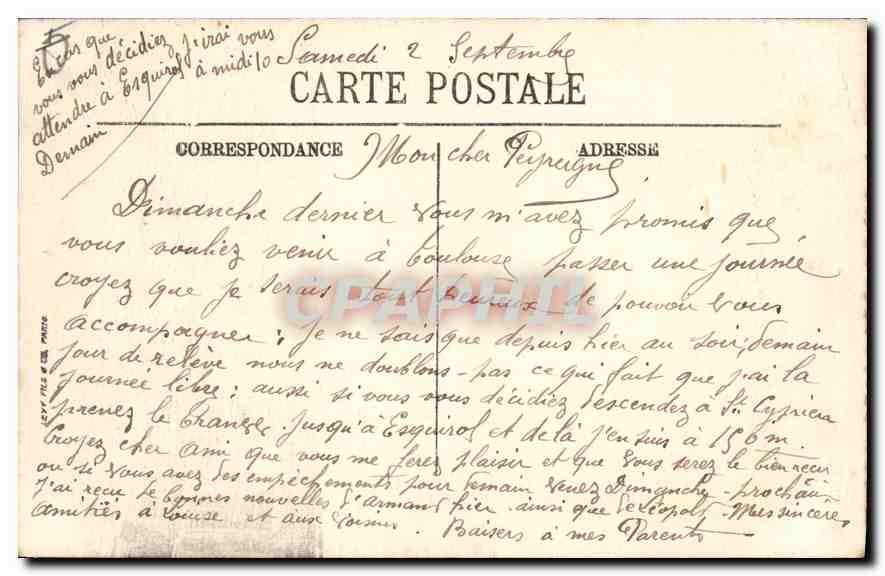 En cas que
vous vous décidiez j'irai vous
attendre à Esquirol à midi 10
Demain
Samedi 2 Septembre
CARTE POSTALE
CORRESPONDANCE
ADRESSE
Mon cher
Dimanche dernier vous m'avez promis que
vous vouliez venir à Toulouse passer une journée
croyez que je serais tout heureux de pouvoir vous
accompagner ; je ne sais que depuis hier au soir, demain
jour de relève nous ne doublons pas ce qui fait que j'ai la
journée libre ; aussi si vous vous décidiez descendez à St Cyprien
prenez le Tranger jusqu'à Esquirol et de là j'en suis à 150 m.
Croyez cher Ami que vous me ferez plaisir et que vous serez le bien reçu
ou si vous avez des empêchements pour demain venez Dimanche prochain
J'ai reçu de bonnes nouvelles d'Armand hier ainsi que de Léopold. Mes sincères
amitiés à Louise et aux voisins. Baisers à mes Parents
LEVY FILS & CIE, PARIS
CPAPHIL